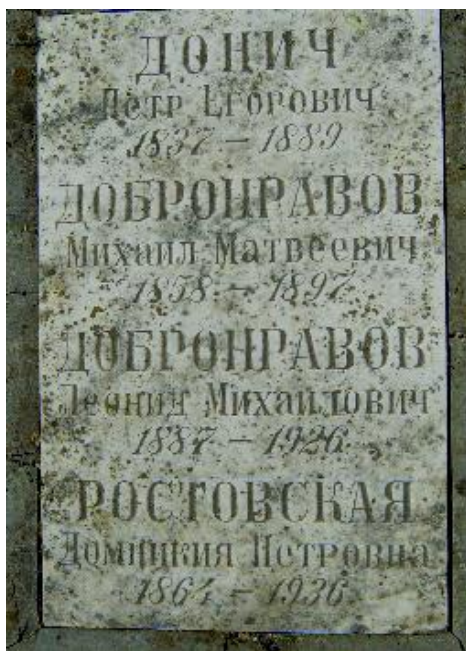 ДОНИЧ
Петр Егорович
1837 – 1889
ДОБРОНРАВОВ
Михаил Матвеевич
1858 – 1897
ДОБРОНРАВОВ
Леонид Михаилович
1887 – 1926
РОСТОВСКАЯ
Домникия Петровна
1864 – 1936